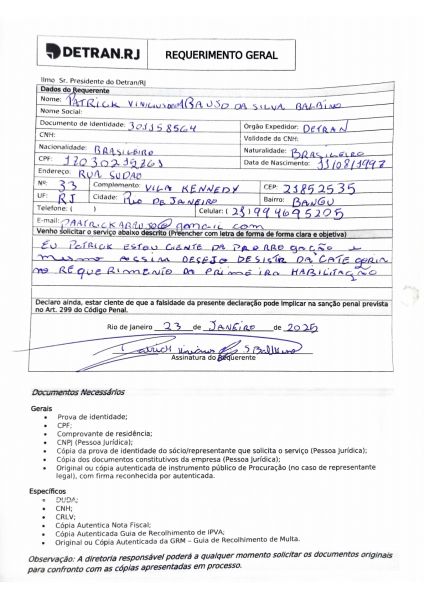 DETRAN.RJ
REQUERIMENTO GERAL
Ilmo Sr. Presidente do Detran/RJ
Dados do Requerente
Nome: PATRICK DA SILVA BALBINO
Nome Social:
Documento de Identidade: 301158564 Órgão Expedidor: DETRAN
CNH: Validade da CNH:
Nacionalidade: BRASILEIRO Naturalidade: BRASILEIRO
CPF: Data de Nascimento: 11/08/1997
Endereço: RUA SUDÃO
Nº: 33 Complemento: VILA KENNEDY CEP: 21852535
UF: RJ Cidade: RIO DE JANEIRO Bairro: BANGU
Telefone: ( ) Celular: (21) 994695205
E-mail:
Venho solicitar o serviço abaixo descrito (Preencher com letra de forma de forma clara e objetiva)
EU PATRICK ESTOU CIENTE DA PRORROGAÇÃO E
MESMO ASSIM DESEJO DESISTIR DA CATEGORIA
NO REQUERIMENTO DA PRIMEIRA HABILITAÇÃO
Declaro ainda, estar ciente de que a falsidade da presente declaração pode implicar na sanção penal prevista
no Art. 299 do Código Penal.
Rio de Janeiro 23 de JANEIRO de 2025
Assinatura do Requerente
Documentos Necessários
Gerais
• Prova de identidade;
• CPF;
• Comprovante de residência;
• CNPJ (Pessoa jurídica);
• Cópia da prova de identidade do sócio/representante que solicita o serviço (Pessoa jurídica);
• Cópia dos documentos constitutivos da empresa (Pessoa jurídica);
• Original ou cópia autenticada de instrumento público de Procuração (no caso de representante
legal), com firma reconhecida por autenticada.
Específicos
• DUDA;
• CNH;
• CRLV;
• Cópia Autentica Nota Fiscal;
• Cópia Autenticada Guia de Recolhimento de IPVA;
• Original ou Cópia Autenticada da GRM – Guia de Recolhimento de Multa.
Observação: A diretoria responsável poderá a qualquer momento solicitar os documentos originais
para confronto com as cópias apresentadas em processo.